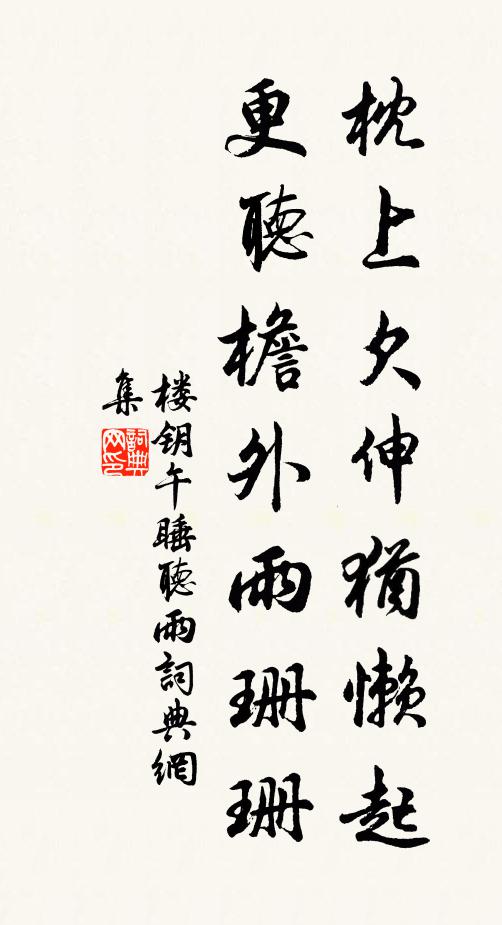 枕上欠伸猶懶起
更聽檐外雨珊珊
楼钥午睡聽雨詞典網
集
詞典网印